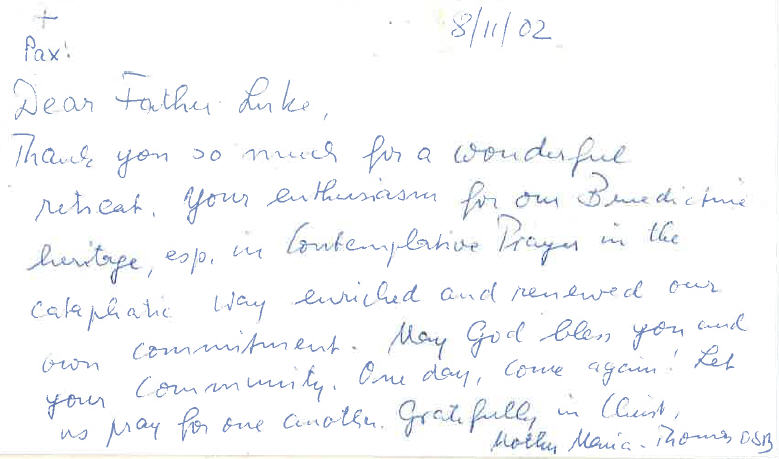 +
8/11/02
Pax!
Dear Father Luke,
Thank you so much for a wonderful
retreat. Your enthusiasm for our Benedictine
heritage, esp. in Contemplative Prayer in the
cataphatic way enriched and renewed our
own commitment. May God bless you and
your Community. One day, come again! Let
us pray for one another. Gratefully in Christ,
Mother Maria-Thomas OSB